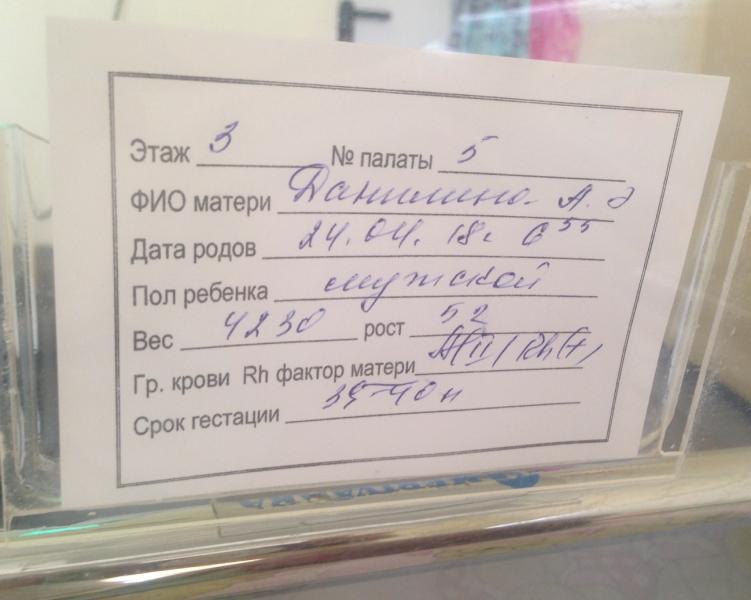 Этаж 3 № палаты 5
ФИО матери Данилина А.Э
Дата родов 24.04.18г 6 55
Пол ребенка мужской
Вес 4230 рост 52
Гр. крови Rh фактор матери A(II) Rh(+)
Срок гестации 39-40 н